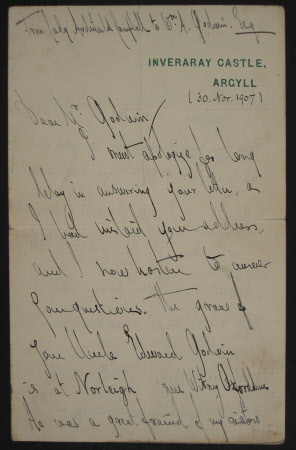 From Lady Archibald Campbell to Wm. A. Godwin. Esq
INVERARAY CASTLE,
ARGYLL
(30. Nov. 1907)
Dear Mr. Godwin
I must apologize for long
delay in answering your letter, as
I had mislaid your address,
and I now hasten to answer
your questions. The grave of
your Uncle Edward Godwin
is at Norleigh near Witney Oxordshire
He was a great friend of my sisters